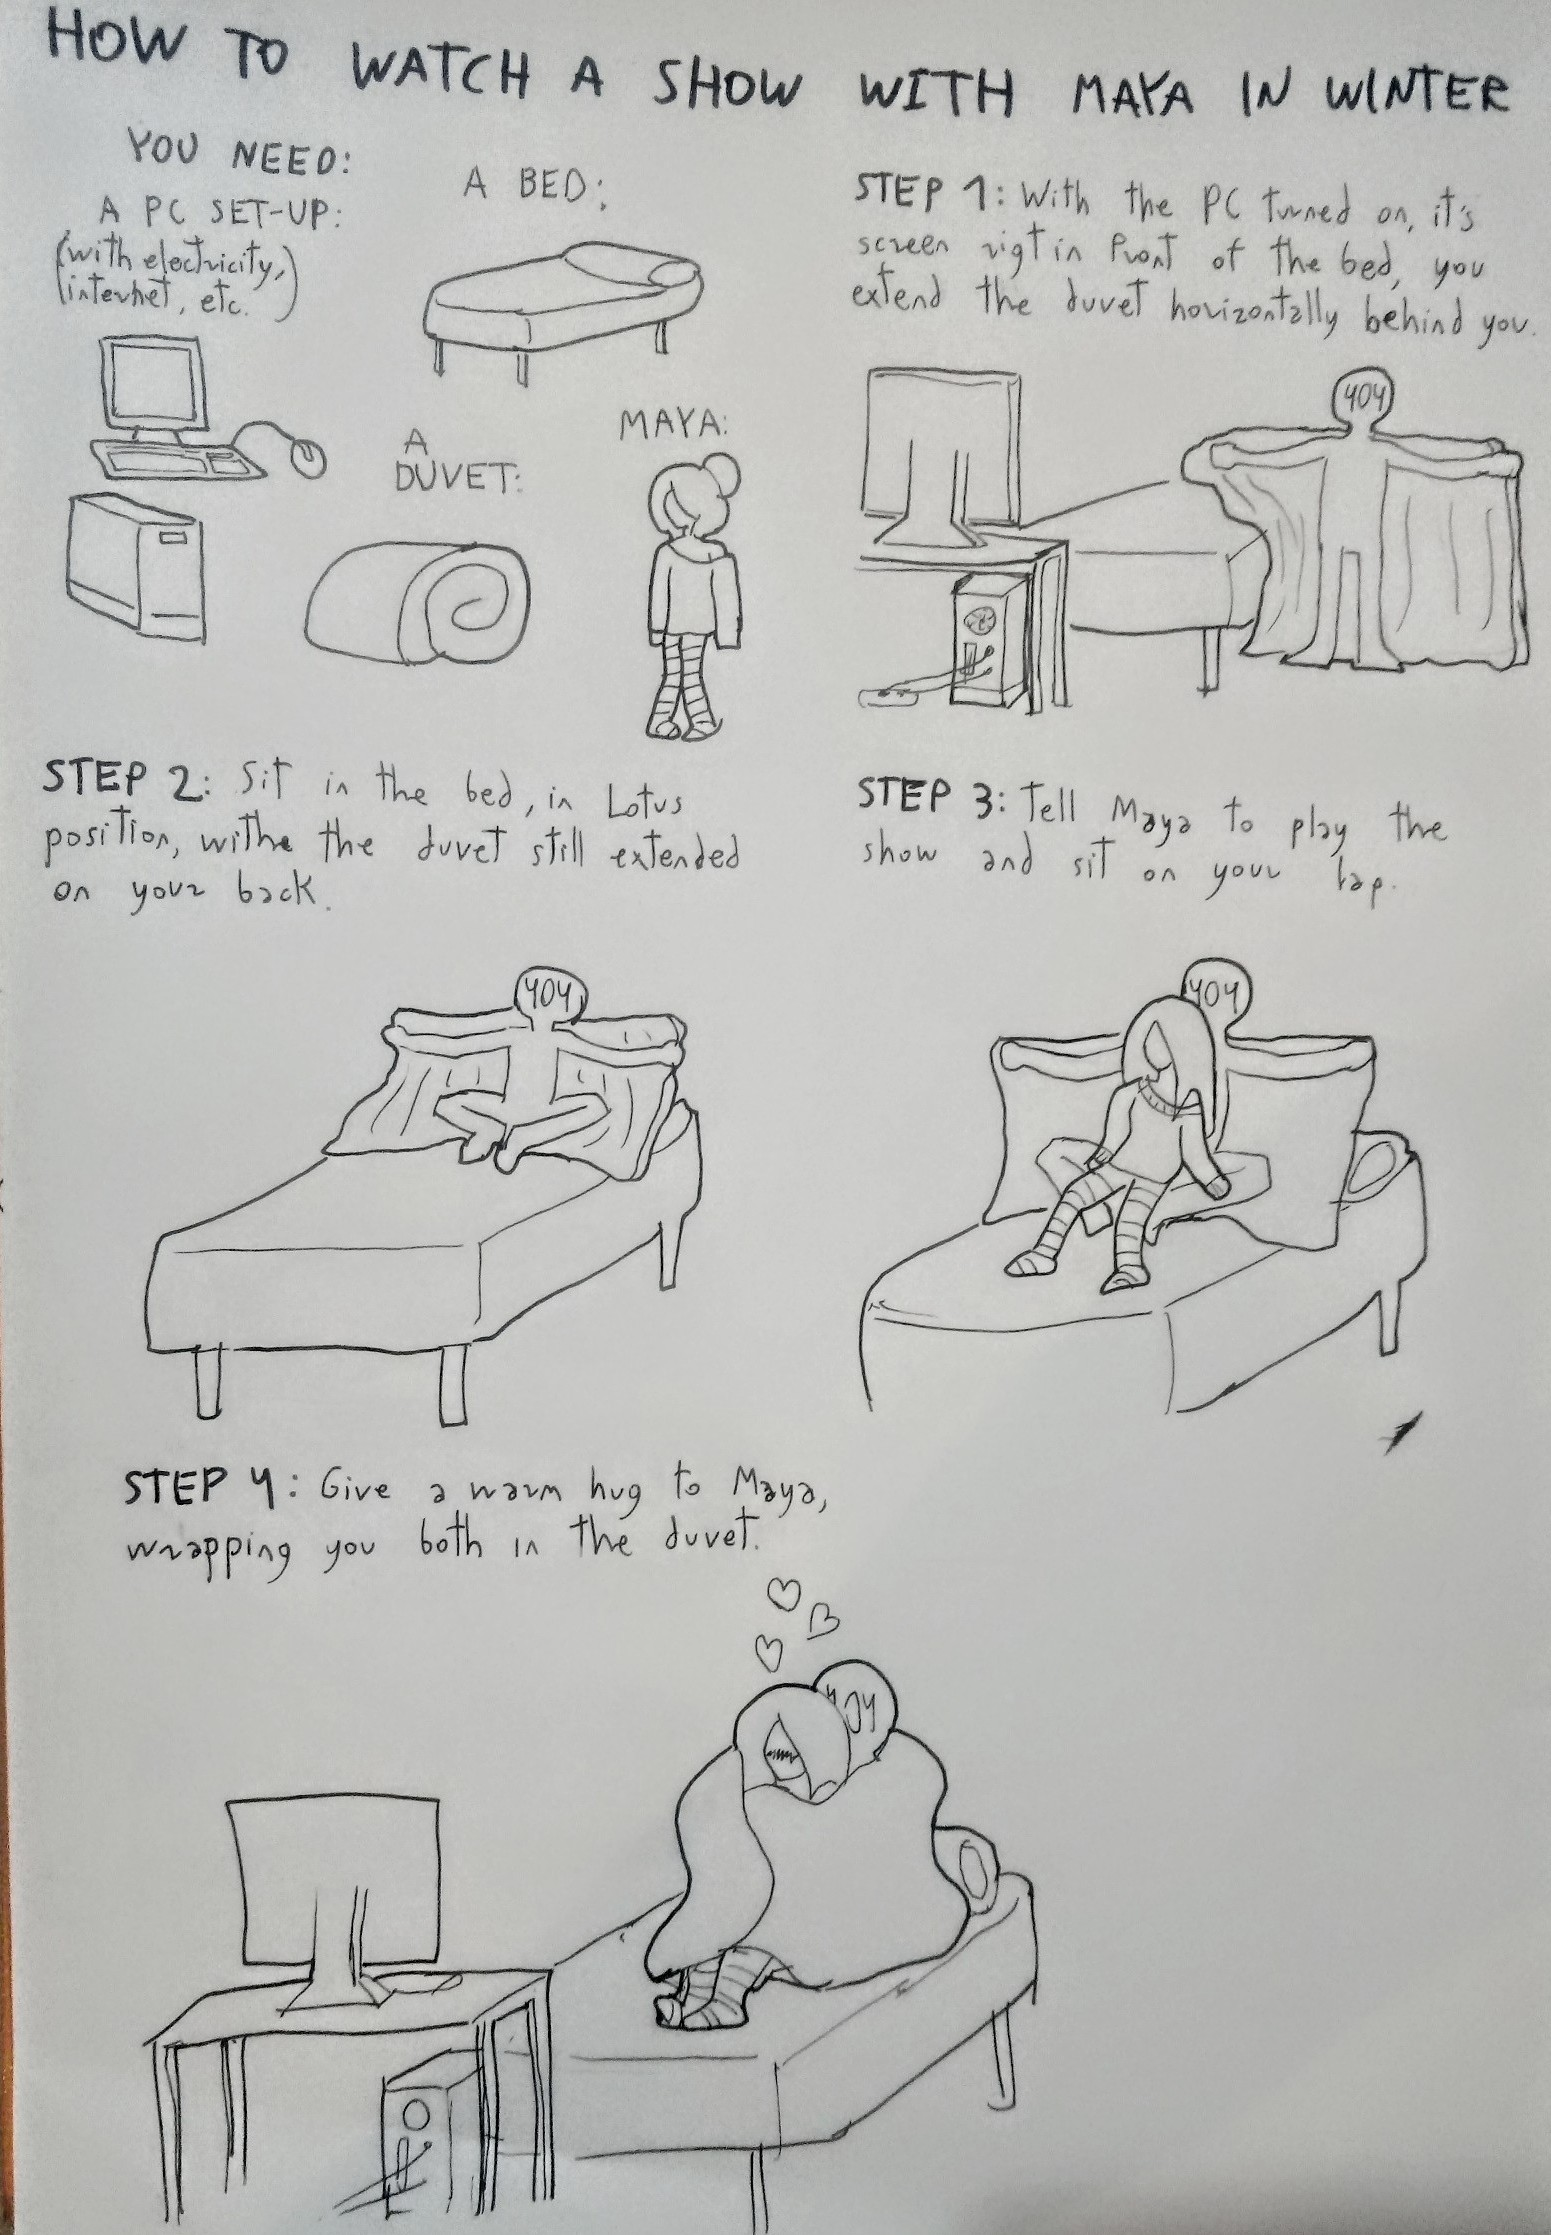 HOW TO WATCH A SHOW WITH MAYA IN WINTER
YOU NEED:
A PC SET-UP:
(with electricity,
internet, etc.)
A BED:
A
DUVET:
MAYA:
STEP 1: With the PC turned on, it's
screen rigt in front of the bed, you
extend the duvet horizontally behind you.
404
STEP 2: Sit in the bed, in Lotus
position, withe the duvet still extended
on your back.
404
STEP 3: Tell Maya to play the
show and sit on your lap.
404
STEP 4: Give a warm hug to Maya,
wrapping you both in the duvet.
404